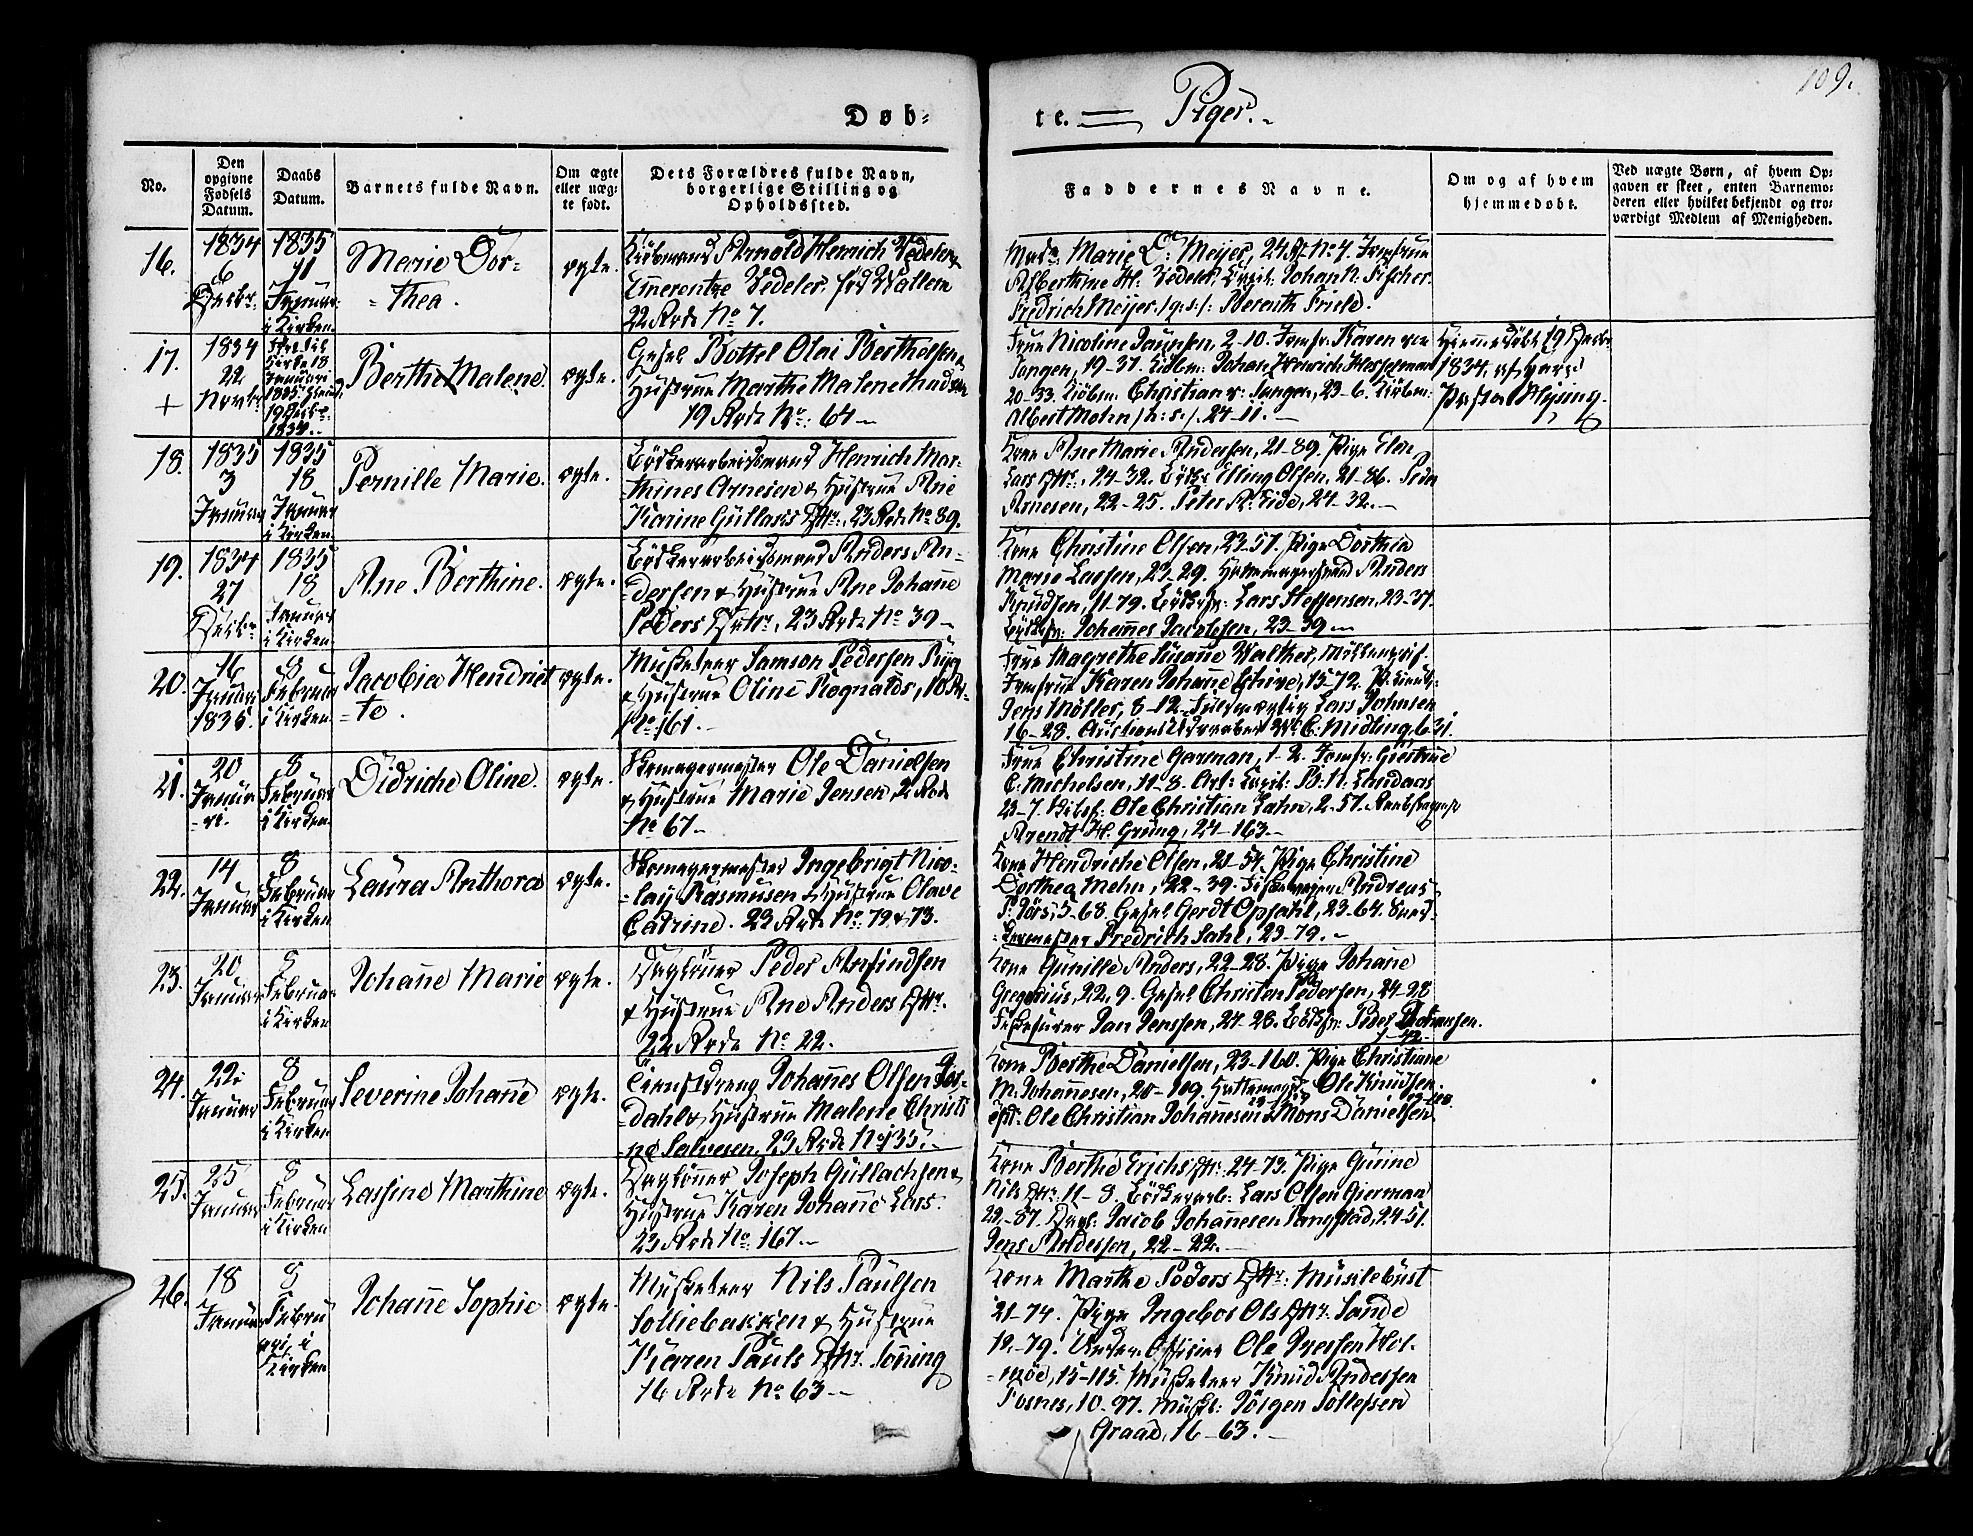 109.
Døb-
te. — Piger.
No.
Den opgivne Fødsels Datum.
Daabs Datum.
Barnets fulde Navn.
Om ægte eller uægte født.
Dets Forældres fulde Navn, borgerlige Stilling og Opholdssted.
Faddernes Navne.
Om og af hvem hjemmedøbt.
Ved uægte Børn, af hvem Opgaven er skeet, enten Barnemoderen eller hvilket bekjendt og troværdigt Medlem af Menigheden.
16.
1834
6
Decbr.
1835
11
Januar
i Kirken
Marie Dor=
=thea.
ægte.
Kiøbmand Arnold Henrich Vedeler &
Emerentze Vedeler, fød Wallem
22 Rode No 7.
Mad. Marie C. Meijer, 24 R No 4. Jomfrue
Alberthine H. Vedeler, Johan N. Fischer.
Fredrich Meijer /q:s:/: Berenth Friele.
17.
1834
22
Novbr
+
18
Januari
1835
19 Decbr
1834.
Berthe Malene.
ægte.
Gesel Bottel Olai Berthelsen &
Hustrue Marthe Malene Madsen
19 Rode No: 64
Frue Nicoline Paulsen, 2-10. Jomfr. Karen von
Tangen, 19-37. Kiøbm: Johan Henrich Hesselman
20-33. Kiøbm: Christian v: Tangen, 23-6. Kiøbm:
Albert Mohn /h:s:/. 24-11.
Hiemmedøbt 19 Decbr
1834, af Herr
Pastor Wysing.
18.
1835
3
Januar
1835
18
Januar
i Kirken
Pernille Marie.
ægte.
Bødkerarbeidsmand Henrich Mar=
thines Arnesen & Hustrue Ane
Karine Gullaks Dtr., 23 Rode No 89.
Kone Ane Marie Andersen, 21-89. Pige Elen
Lars Dtr., 24-32. Bødk: Elling Olsen, 21-86. Peder
Arnesen, 22-25. Peter A. Eide, 24-32.
19.
1834
27
Decbr
1835
18
Januar
i Kirken
Ane Berthine.
ægte.
Bødkerarbeidsmand Anders An=
=dersen & Hustrue Ane Johanne
Peders Dtr, 23 Rode No 39
Kone Christine Olsen, 23-57. Pige Dorthea
Marie Lassen, 23-29. Hattemagersvend Anders
Knudsen, 11-79. Lars Steffensen, 23-37.
Johannes Jacobsen, 23-39
20.
16
Januar
1835.
8
Februar
i Kirken
Jacobia Hendriet
=te.
ægte.
Musketeer Samson Pedersen
& Hustrue Oline Rognalds, 10 R:
No: 161.
Frue Magrethe Susanne Walther,
Jomfrue Karen Johanne Schive, 15-72.
Jens Möller, 8-12. Fuldmægtig Lars Johnsen
16-28. C. Midling, 6-31.
21.
20
Januar
8
Februar
i Kirken
Didriche Oline.
ægte.
Skomagermester Ole Danielsen
& Hustrue Marie Jensen, 2 Rode
No 67
Frue Christine German, 1-2. Jomfr: Giertrue
C. Michelsen, 11-8. B. N. Landaas
23-7. Ole Christian Zahn, 2-57.
Arendt H. Grüng, 24-163
22.
14
Januar
8
Februar
i Kirken
Laura Anthora
ægte.
Skomagermester Ingebrigt Nico=
=lay Rasmusen & Hustrue Olave
Catrine. 23 Rode No: 72 & 73.
Kone Hendriche Olsen, 21-54. Pige Christine
Dorthea Mehn, 22-39. Andreas
5-68. Gesel Gerdt Opsahl, 23-64.
Fredrich Sahl, 23-79.
23.
20
Januar
8
Februar
i Kirken
Johanne Marie
ægte.
Dagløner Peder Arfindsen
& Hustrue Ane Anders Dtr.
22 Rode No 22.
Kone Gunille Anders, 22-28. Pige Johanne
Gregorius, 22, 9. Gesel Christen Pedersen, 24-28
Jan Jenssen, 24-28. Peder Thomassen.
24.
22
Januar
8
Februar
i Kirken
Severine Johanne
ægte.
Tienstdreng Johannes Olsen
=dahl & Hustrue Malene Christi
=ne Salvesen, 23 Rode No 135.
Kone Berthe Danielsen, 23-160. Pige Christiane
M. Johannesen, 20-109. Ole Knudsen.
Ole Christian Johannesen & Mons Danielsen
25.
25
Januar
8
Februar
i Kirken
Lassine Marthine
ægte.
Dagløner Joseph Gullachsen &
Hustrue Karen Johanne Lars.
23 Rode No: 167.
Kone Berthe Erichs Dtr: 24-73. Pige Gurine
Nils Dtr: 11-8. Bødkerarb: Lars Olsen Gierman
22-87. Jacob Johannesen, 24-51.
Jens Andersen, 22-22.
26.
18
Januar
8
Februari
i
Kirken
Johanne Sophie
ægte.
Musketeer Nils Paulsen
Solliebakken & Hustrue
Karen Pauls Dtr.
16 Rode No 63
Kone Marthe Peders Dtr:
21-74. Pige Ingebor Ols Dtr: Sande
12-79. Under Officier Ole Iversen Hol=
15-115. Musketeer Knud Andersen
10-97. Musk: Jörgen Tollefsen
Graad, 16-63.